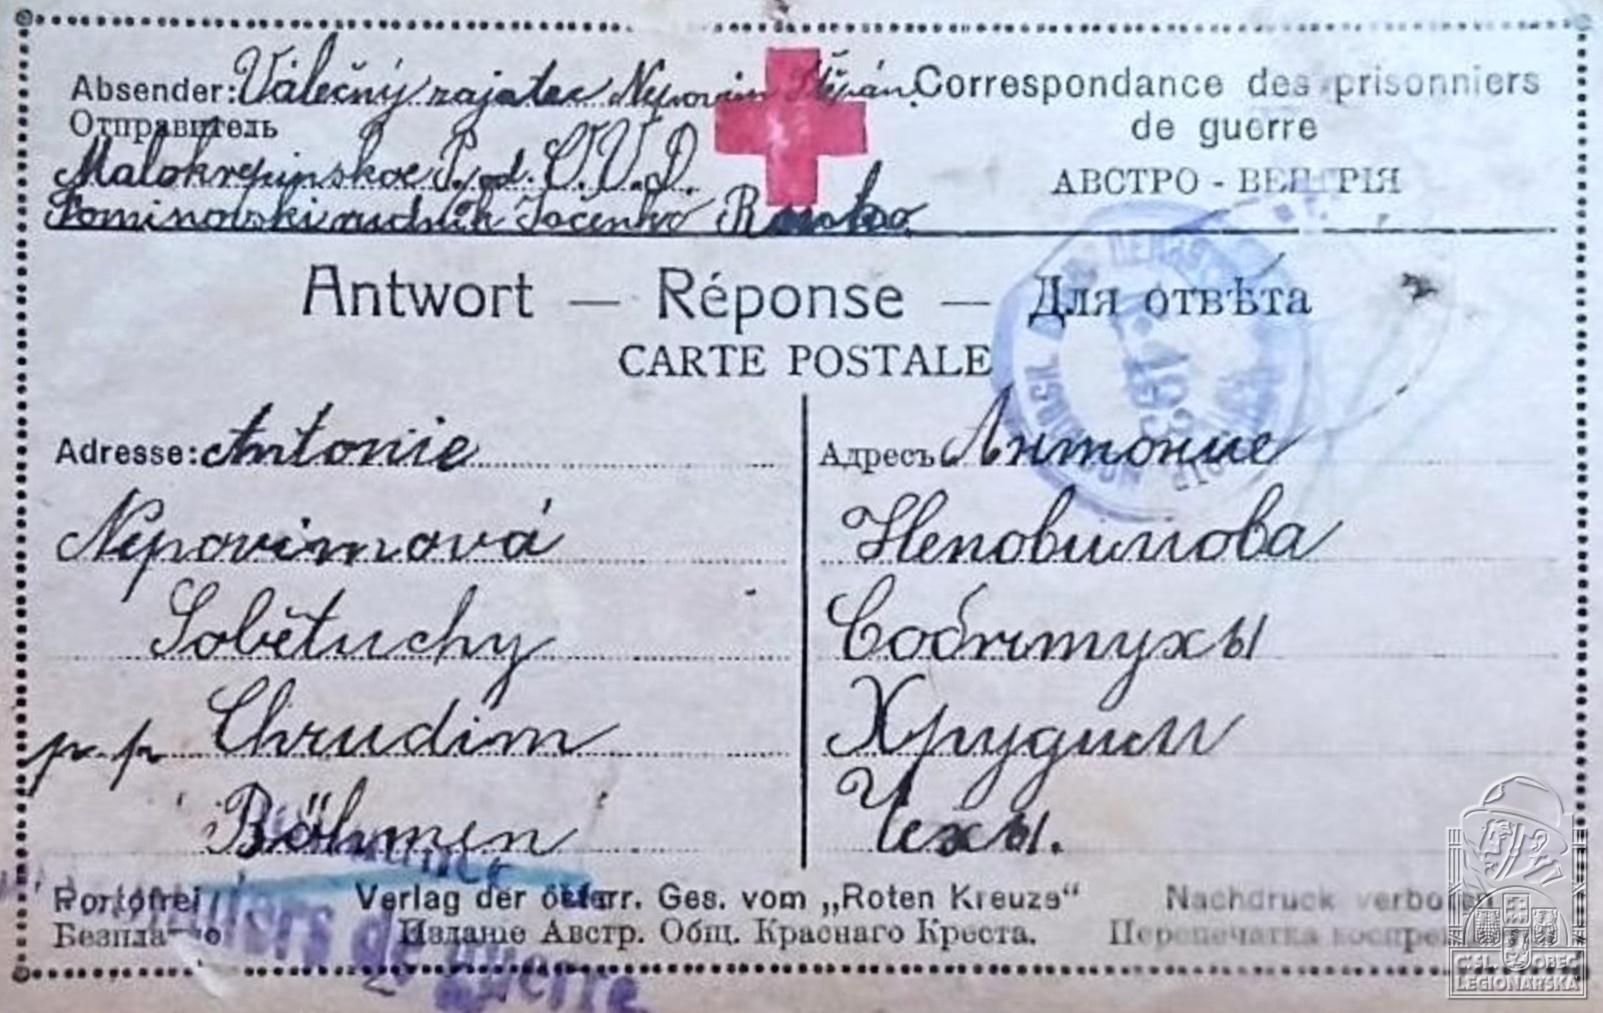 Absender: Válečný zajatec Nepovím Štěpán. Correspondance des prisonniers
Отправитель de guerre
Malokrepinskoe P. od. O.V.D. АВСТРО - ВЕНГРІЯ
rudnik Rusko
Antwort — Réponse — Для отвѣта
CARTE POSTALE
Adresse: Antonie
Nepovimová
Sobětuchy
p. p. Chrudim
Böhmen
Адресъ Антоние
Неповимова
Собѣтухы
Хрудим
Чехы.
Portofrei Verlag der österr. Ges. vom „Roten Kreuze“ Nachdruck verboten
Безплатно Издание Австр. Общ. Краснаго Креста. Перепечатка
de guerre
ČSL. OBEC
LEGIONÁŘSKÁ